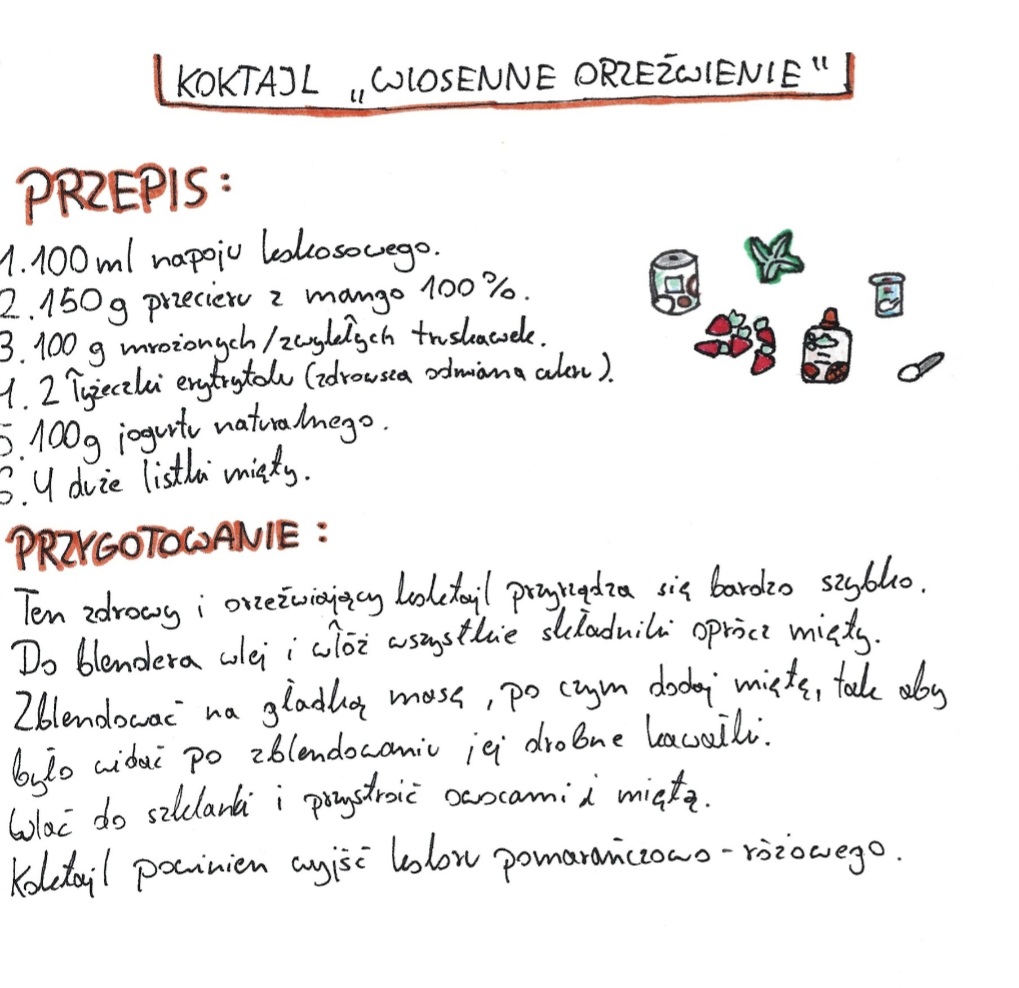 KOKTAJL „WIOSENNE ORZEŹWIENIE"
PRZEPIS:
1. 100 ml napoju kokosowego.
2. 150 g przecieru z mango 100%.
3. 100 g mrożonych/zwykłych truskawek.
4. 2 łyżeczki erytrytolu (zdrowsza odmiana cukru).
5. 100g jogurtu naturalnego.
6. 4 duże listki mięty.
PRZYGOTOWANIE:
Ten zdrowy i orzeźwiający koktajl przyrządza się bardzo szybko.
Do blendera wlej i włóż wszystkie składniki oprócz mięty.
Zblendować na gładką masę, po czym dodaj miętę, tak aby
było widać po zblendowaniu jej drobne kawałki.
Wlać do szklanki i przystroić owocami i miętą.
Koktajl powinien wyjść koloru pomarańczowo-różowego.